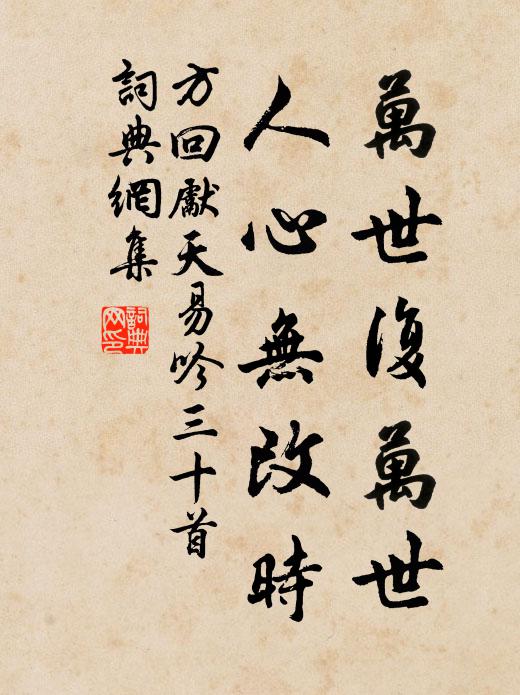 萬世復萬世
人心無改時
方回獻天易吟三十首
詞典網集
詞典
网印